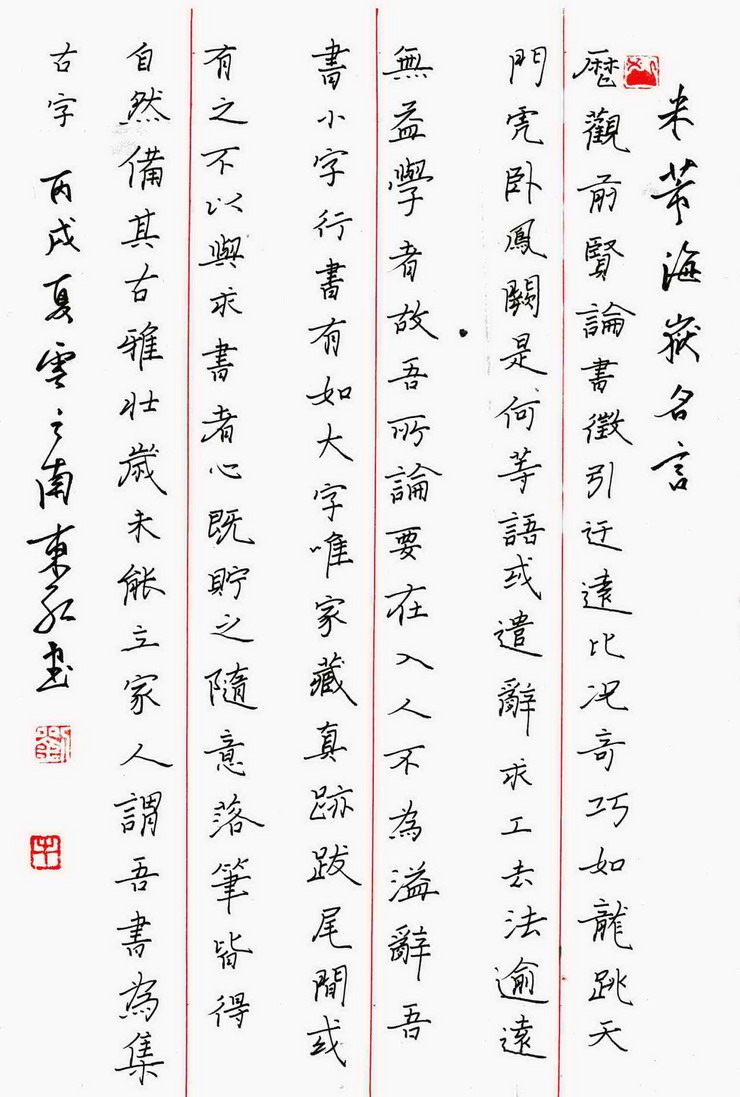 米芾海嶽名言
曆觀前賢論書徵引迂遠比況奇巧如龍跳天
門虎卧鳳闕是何等語或遣辭求工去法逾遠
無益學者故吾所論要在入人不為溢辭吾
書小字行書有如大字唯家藏真跡跋尾間或
有之不以與求書者心既貯之隨意落筆皆得
自然備其古雅壮歲未能立家人謂吾書為集
古字 丙戌夏雲之南東紅书
劉